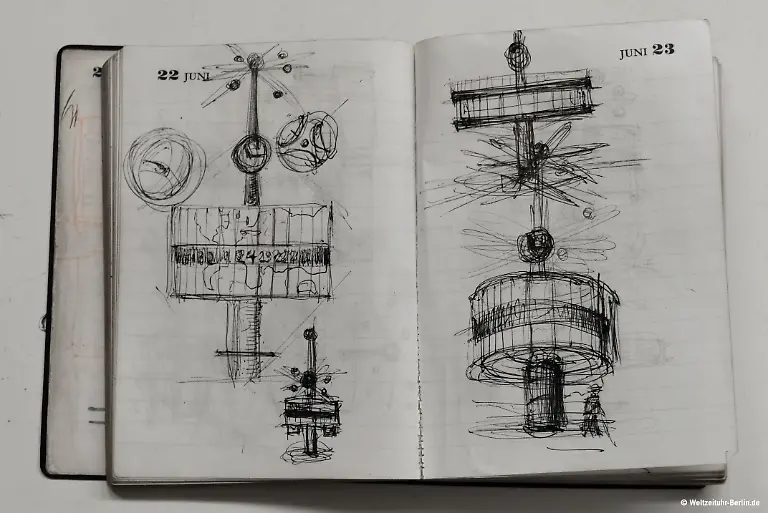 2
22 JUNI
24 23 22
JUNI 23
© Weltzeituhr-Berlin.de